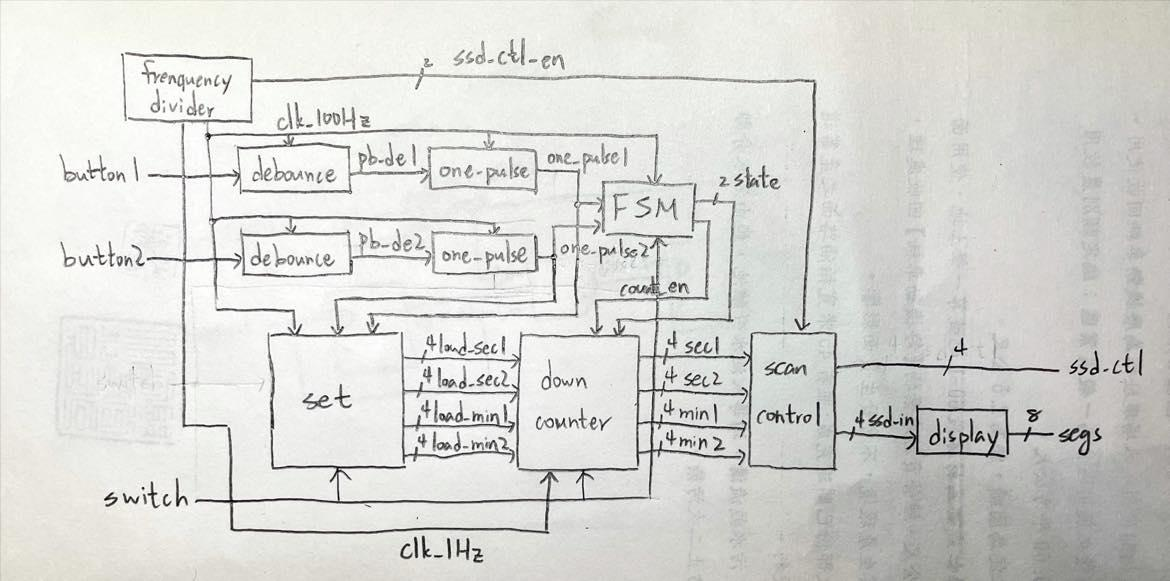 2 ssd_ctl_en
frenquency
divider
clk_100Hz
button1
debounce
pb_de1
one-pulse
one_pulse1
FSM
2 state
button2
debounce
pb_de2
one-pulse
one_pulse2
count_en
set
4 load_sec1
4 load_sec2
4 load_min1
4 load_min2
down
counter
4 sec1
4 sec2
4 min1
4 min2
scan
control
4
ssd_ctl
4 ssd_in
display
8
segs
switch
clk_1Hz